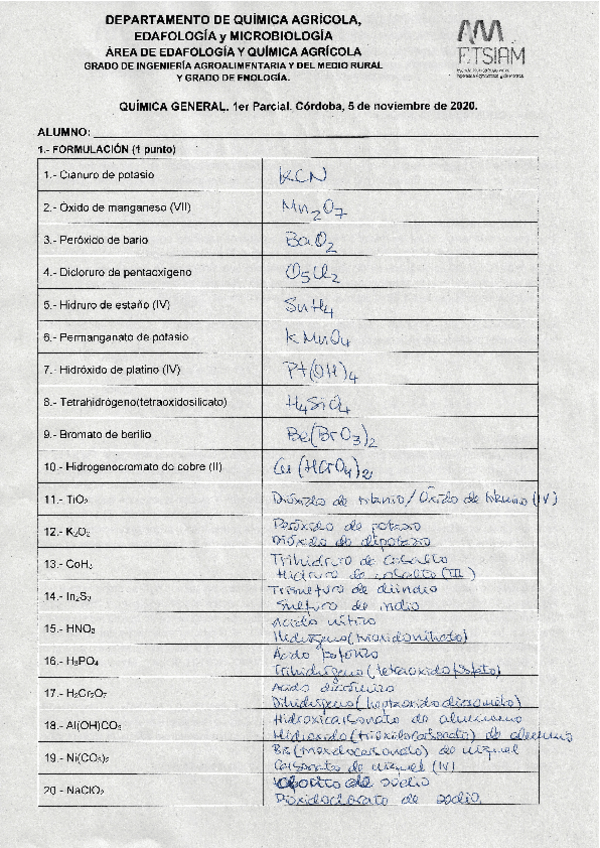 DEPARTAMENTO DE QUÍMICA AGRÍCOLA,
EDAFOLOGÍA y MICROBIOLOGÍA
ÁREA DE EDAFOLOGÍA Y QUÍMICA AGRÍCOLA
GRADO DE INGENIERÍA AGROALIMENTARIA Y DEL MEDIO RURAL
Y GRADO DE ENOLOGÍA.
ETSIAM
QUÍMICA GENERAL. 1er Parcial. Córdoba, 5 de noviembre de 2020.
ALUMNO:
1.- FORMULACIÓN (1 punto)
1.- Cianuro de potasio KCN
2.- Óxido de manganeso (VII) Mn₂O₇
3.- Peróxido de bario BaO₂
4.- Dicloruro de pentaoxígeno O₅Cl₂
5.- Hidruro de estaño (IV) SnH₄
6.- Permanganato de potasio KMnO₄
7.- Hidróxido de platino (IV) Pt(OH)₄
8.- Tetrahidrógeno(tetraoxidosilicato) H₄SiO₄
9.- Bromato de berilio Be(BrO₃)₂
10.- Hidrogenocromato de cobre (II) Cu(HCrO₄)₂
11.- TiO₂ Dióxido de titanio / Óxido de titanio (IV)
12.- K₂O₂ Peróxido de potasio
Dióxido de dipotasio
13.- CoH₃ Trihidruro de cobalto
Hidruro de cobalto (III)
14.- In₂S₃ Trisulfuro de diindio
Sulfuro de indio
15.- HNO₂ Ácido nitroso
16.- H₃PO₄ Ácido fosfórico
Trihidrógeno(tetraoxidofosfato)
17.- H₂Cr₂O₇ Ácido dicrómico
Dihidrógeno(heptaoxidodicromato)
18.- Al(OH)CO₃ Hidroxicarbonato de aluminio
Hidróxido (trioxidocarbonato) de aluminio
19.- Ni(CO₃)₂ de níquel
Carbonato de níquel (IV)
20.- NaClO₂ de sodio
Dioxidoclorato de sodio